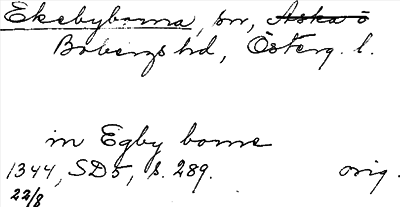 Ekebyborna, sn, Aska ö
Bobergs hd, Österg. l.
in Egby borne
1344, SD5, s. 289. orig.
22/8